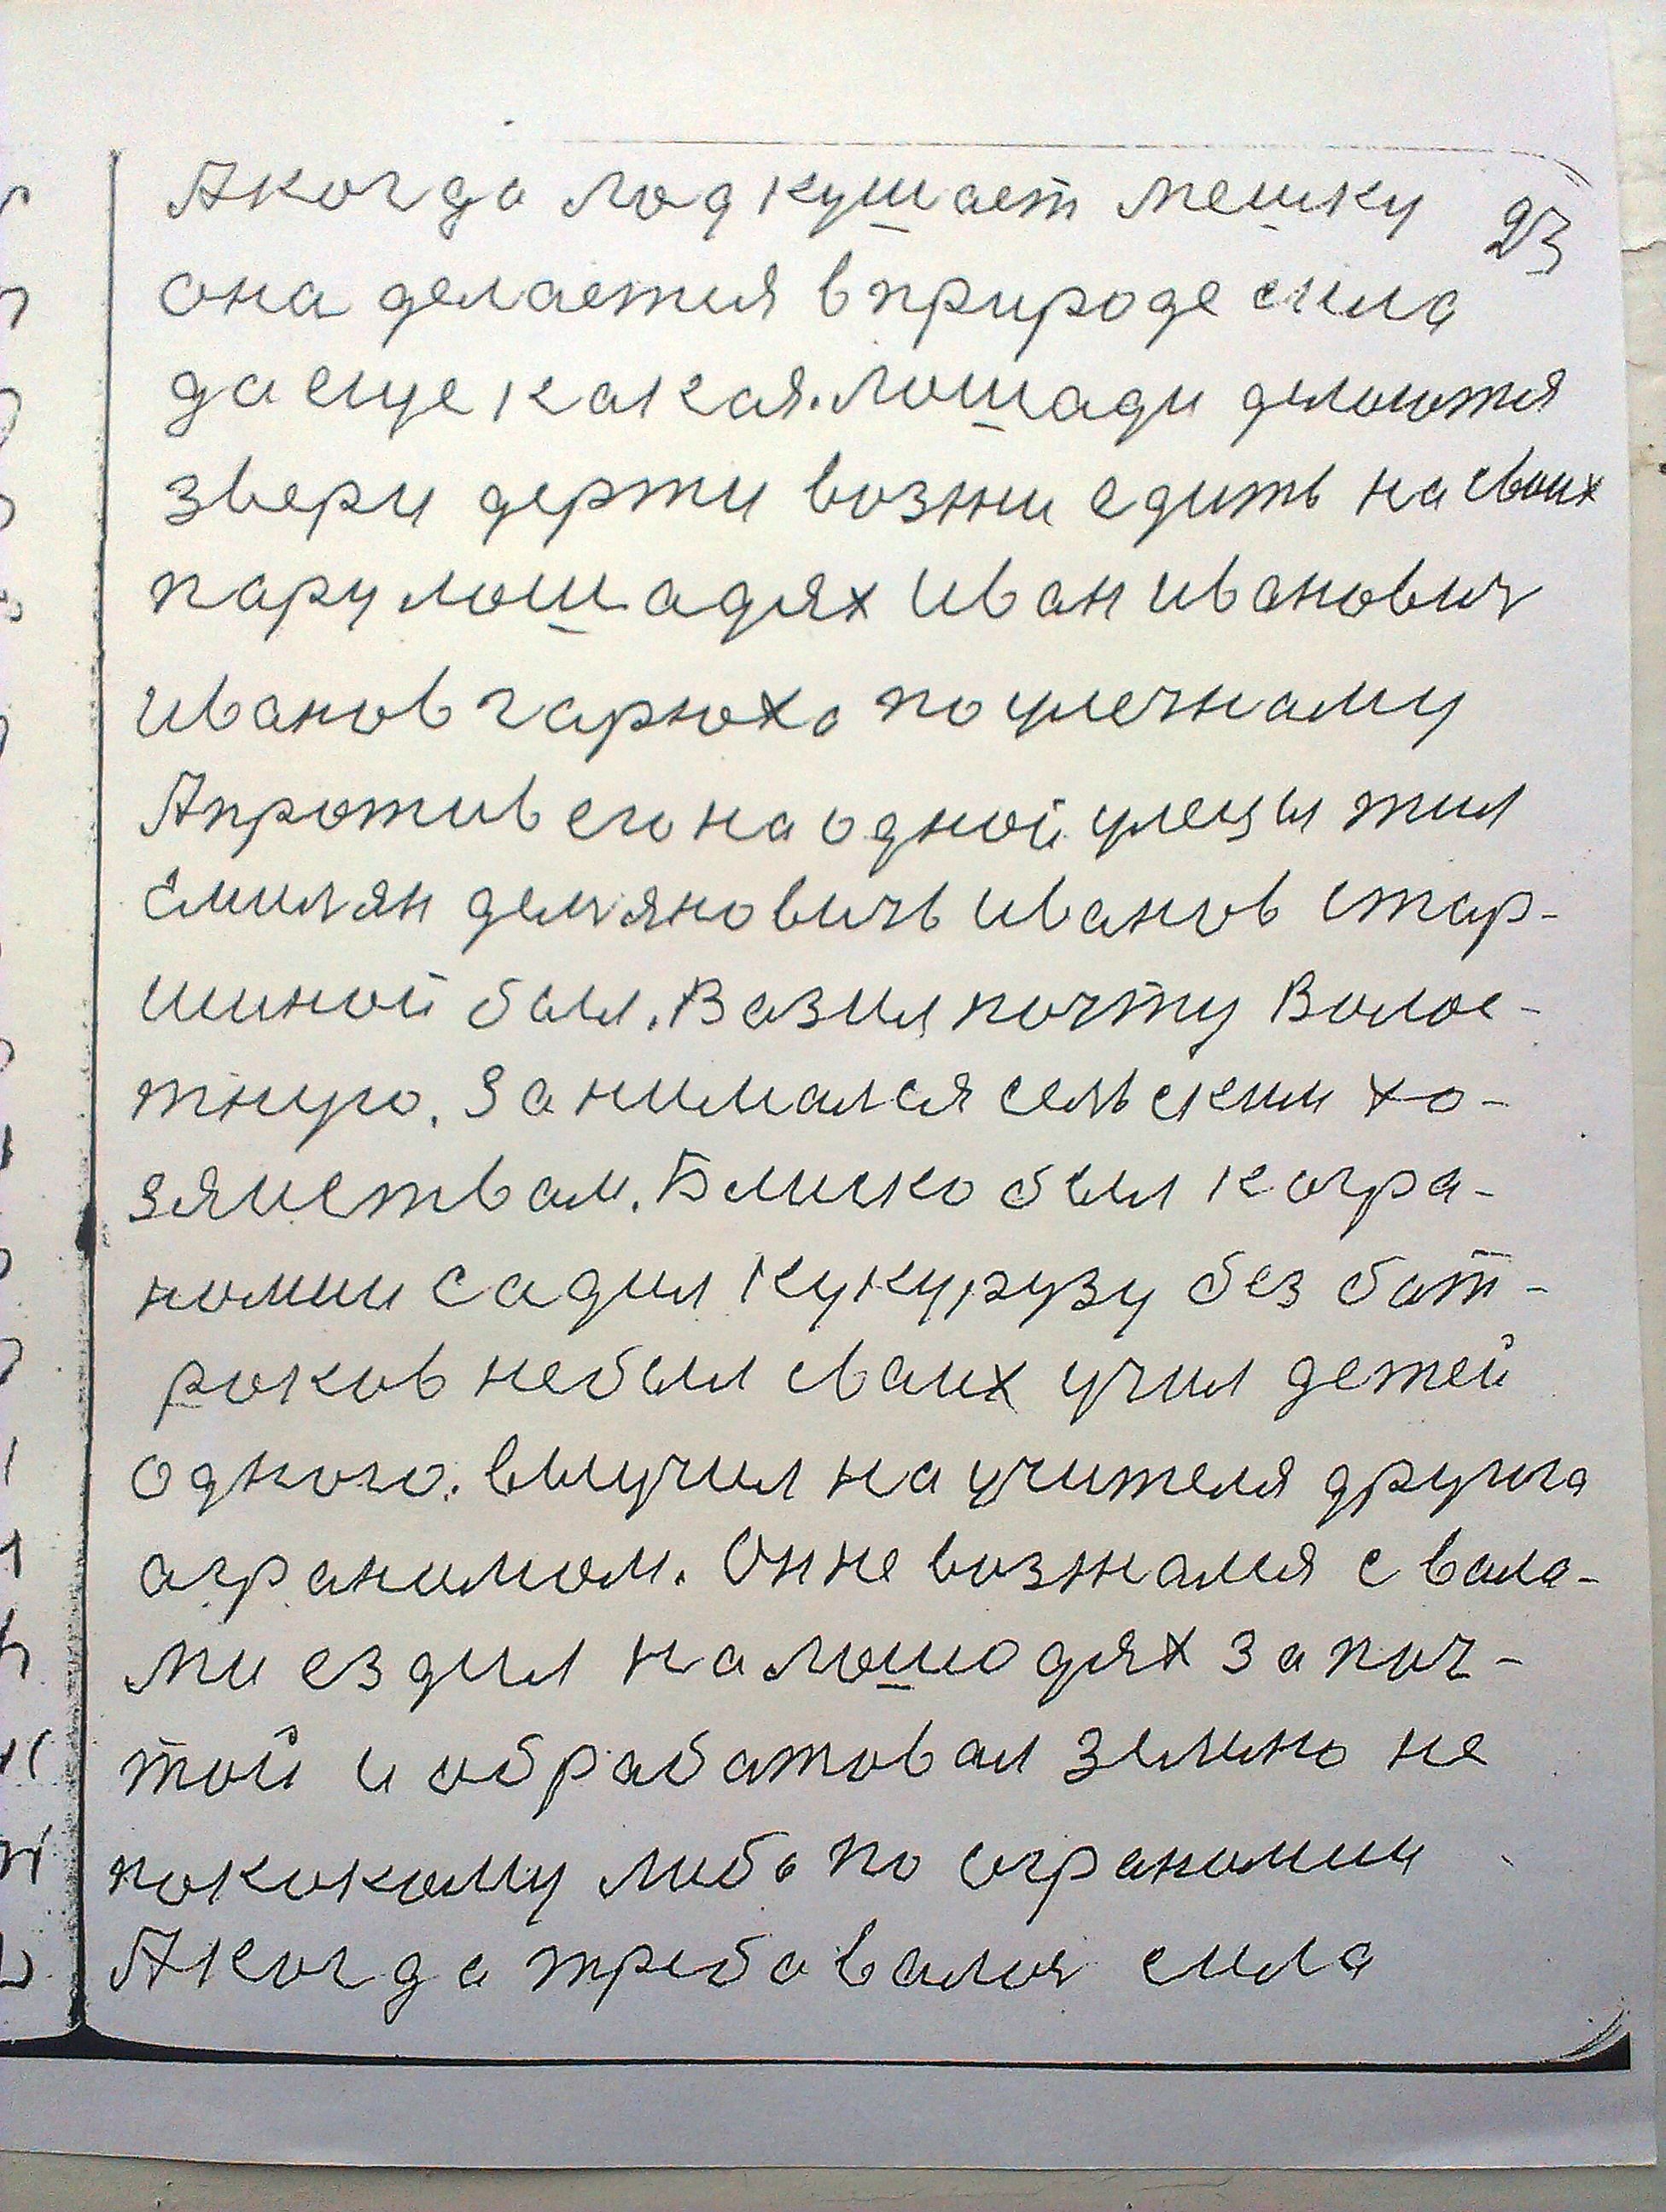 Акогда лод кушает мешку
23
она делается вприроде сила
да еще какая. лошади делаются
звери держи возжи едить на своих
пару лошадях Иван Иванович
Иванов гарюха по улечнаму
Апротив его на одной улецы жил
Емилян демянович Иванов стар-
шиной был. Вазил почту Волос-
тную. Занимался сельским хо-
зяиствам. Блиско был к агра-
номии садил кукурузу без бат-
раков небыл сваих учил детей
одного. выучил на учителя другога
аграномом. Он не возжался с вала-
ми ездил на лошодях за поч-
той и обрабатовал землю не
пококому либо по аграномии
Акогда требавалоя сила